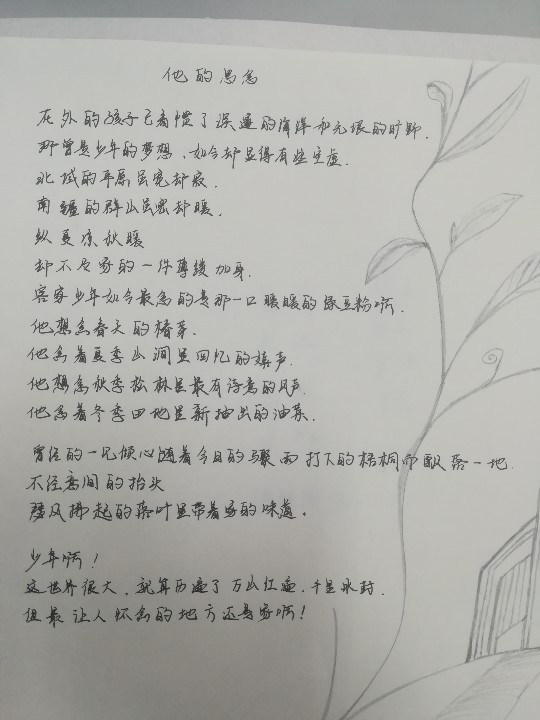 他的思念
在外的孩子已看惯了深邃的海洋和无垠的旷野.
那曾是少年的梦想、如今却显得有些空虚.
北域的平原虽宽却寂.
南疆的群山虽密却暖.
纵夏凉秋暖
却不及家的一件薄缕加身.
客家少年如今最念的是那一口暖暖的绿豆粉啊.
他想念春天的椿芽.
他念着夏季山涧里回忆的蝉声.
他想念秋季松林里最有诗意的风声.
他念着冬季田地里新抽出的油菜.
曾经的一见倾心随着今日的骤雨打下的梧桐而飘落一地.
不经意间的抬头
随风拂起的落叶里带着家的味道.
少年啊!
这世界很大.就算历遍了万山红遍.千里冰封.
但最让人怀念的地方还是家啊!